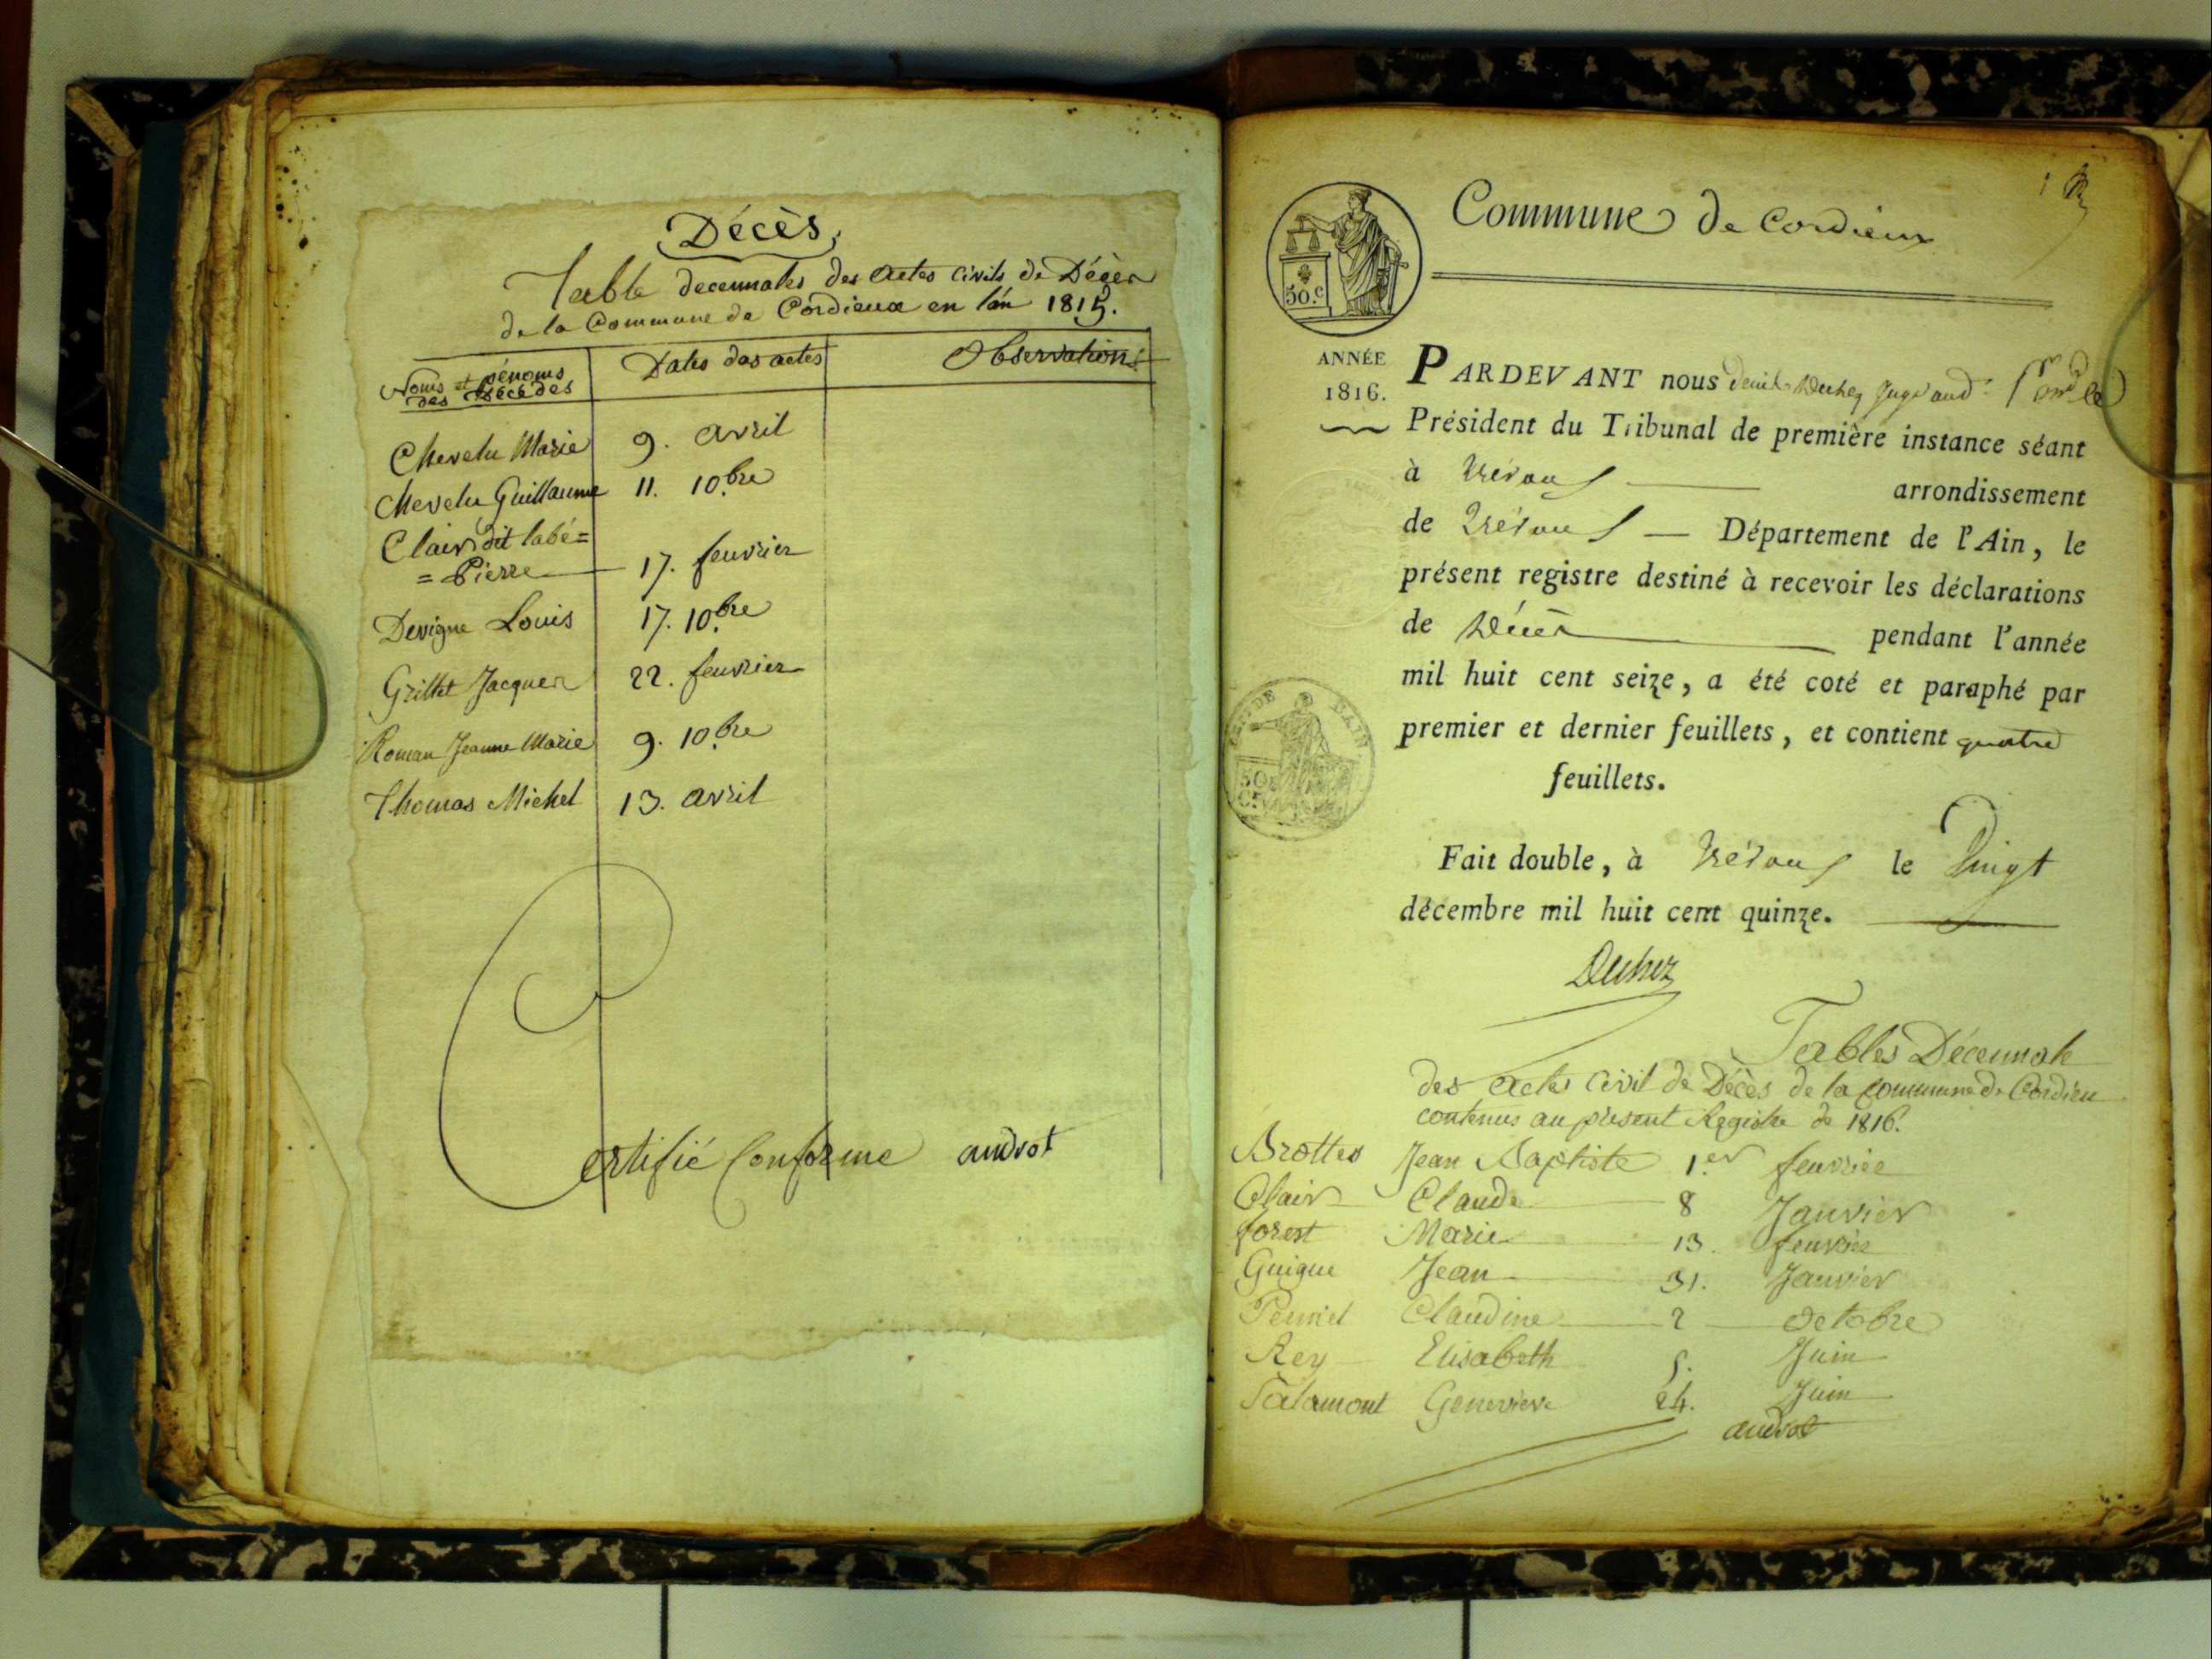 Décès
Table decennales des actes civils de Décès
de la Commune de Cordieux en l'an 1815.
Noms et prénoms
des Décédés
Dates des actes
Observations
Chevelu Marie 9. avril
Chevelu Guillaume 11. 10.bre
Clair dit labé=
=Pierre 17. feuvrier
Devigne Louis 17. 10.bre
Grillet Jacques 22. feuvrier
Roman Jeanne Marie 9. 10.bre
Thomas Michel 13. avril
Certifié Conforme androt
Commune de Cordieux
50.c
ANNÉE
1816.
PARDEVANT nous Duhez Juge aud.
Président du Tribunal de première instance séant
à Trévoux arrondissement
de Trévoux Département de l'Ain, le
présent registre destiné à recevoir les déclarations
de Décès pendant l'année
mil huit cent seize, a été coté et paraphé par
premier et dernier feuillets, et contient quatre
feuillets.
Fait double, à Trévoux le Vingt
décembre mil huit cent quinze.
Duhez
Tables Décennale
des actes Civil de Décès de la Commune de Cordieu
contenus au présent Registre de 1816.
Brottes Jean Baptiste 1.er feuvrier
Clair Claude 8 Janvier
forest Marie 13. feuvrier
Guigue Jean 31. Janvier
Perriet Claudine 2 octobre
Rey Elisabeth 5. Juin
Talamont Genevieve 24. Juin
androt